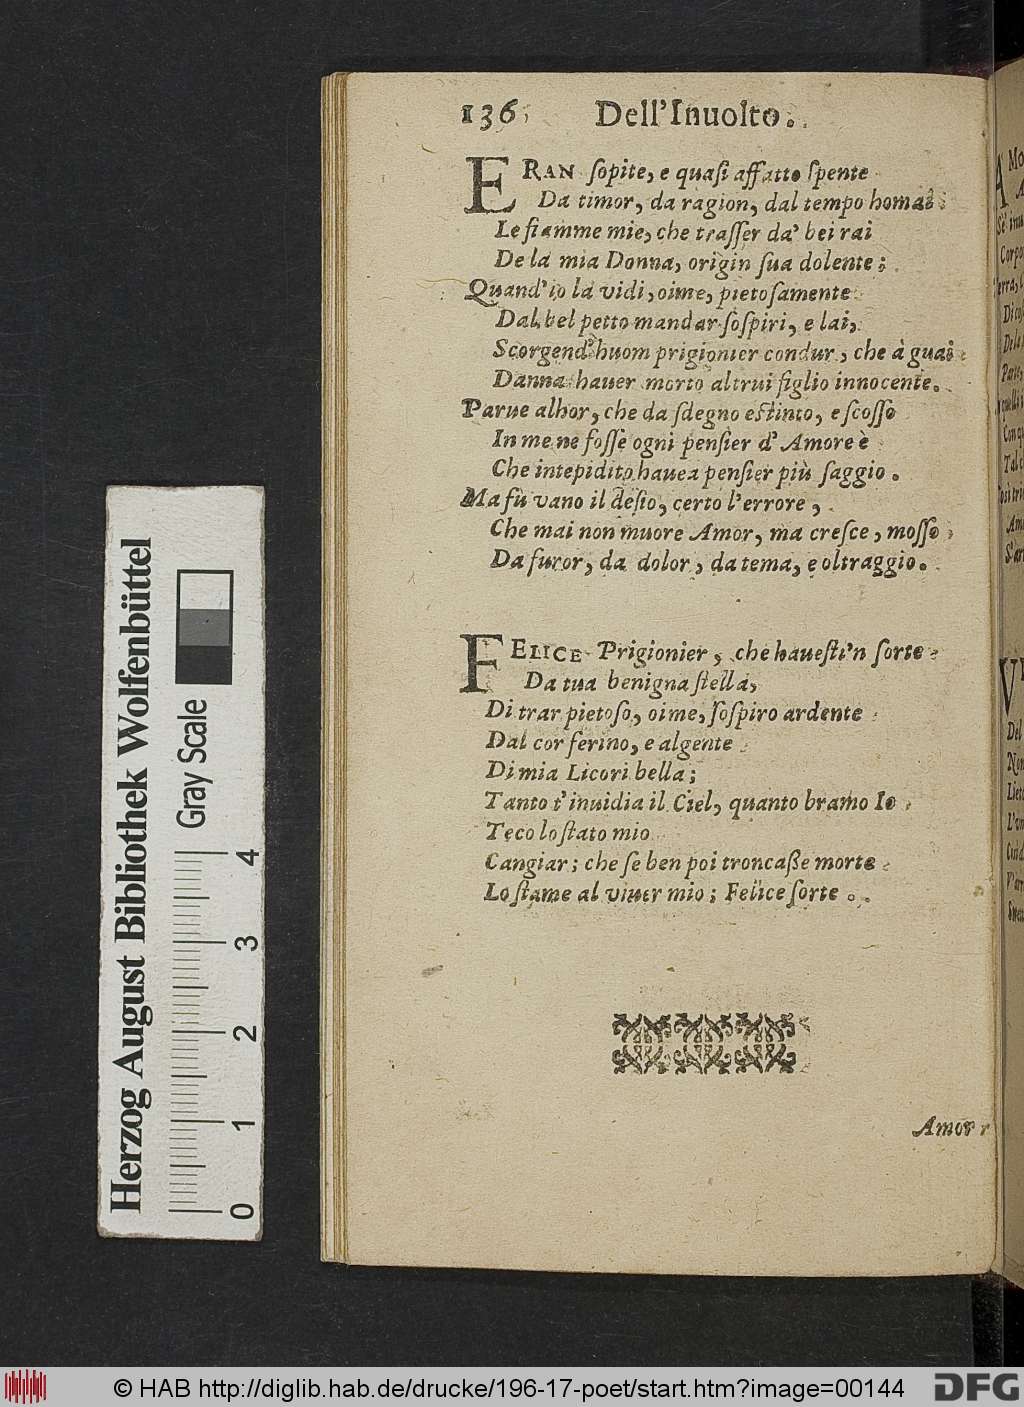 136 Dell'Inuolto.
ERAN ſopite, e quaſi affatto ſpente
Da timor, da ragion, dal tempo homai
Le fiamme mie, che traſſer da' bei rai
De la mia Donna, origin ſua dolente;
Quand'io la vidi, oime, pietoſamente
Dal bel petto mandar ſoſpiri, e lai,
Scorgend'huom prigionier condur, che à guai
Danna hauer morto altrui figlio innocente.
Parue alhor, che da ſdegno eſtinto, e ſcoſſo
In me ne foſſe ogni penſier d'Amore è
Che intepidito hauea penſier più ſaggio.
Ma fù vano il deſio, certo l'errore,
Che mai non muore Amor, ma creſce, moſſo
Da furor, da dolor, da tema, e oltraggio.
FELICE Prigionier, che haueſti'n ſorte
Da tua benigna ſtella,
Di trar pietoſo, oime, ſoſpiro ardente
Dal cor ferino, e algente
Di mia Licori bella;
Tanto t'inuidia il Ciel, quanto bramo Io
Teco lo ſtato mio
Cangiar; che ſe ben poi troncaße morte
Lo ſtame al viuer mio; Felice ſorte.
Amor
Herzog August Bibliothek Wolfenbüttel
Gray Scale
0 1 2 3 4
© HAB http://diglib.hab.de/drucke/196-17-poet/start.htm?image=00144
DFG